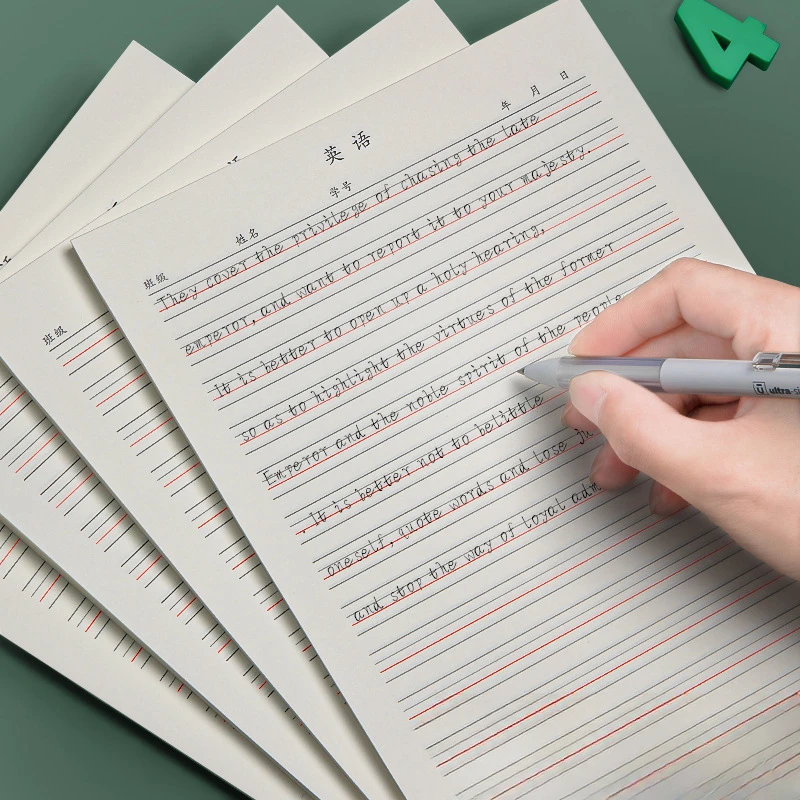 4
英语
年 月 日
班级 姓名 学号
They cover the privilege of chasing the late
emperor, and want to report it to your majesty.
It is better to open up a holy hearing,
so as to highlight the virtues of the former
Emperor and the noble spirit of the people
. It is better not to belittle
oneself, quote words and lose ju
and stop the way of loyal adm
班级
ultra-si